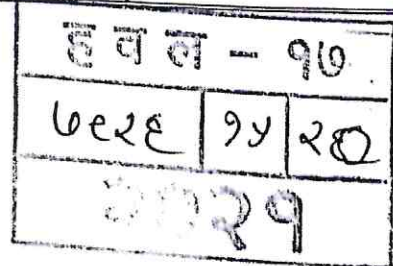 हवल - १७
७९२६ १५
२०२१